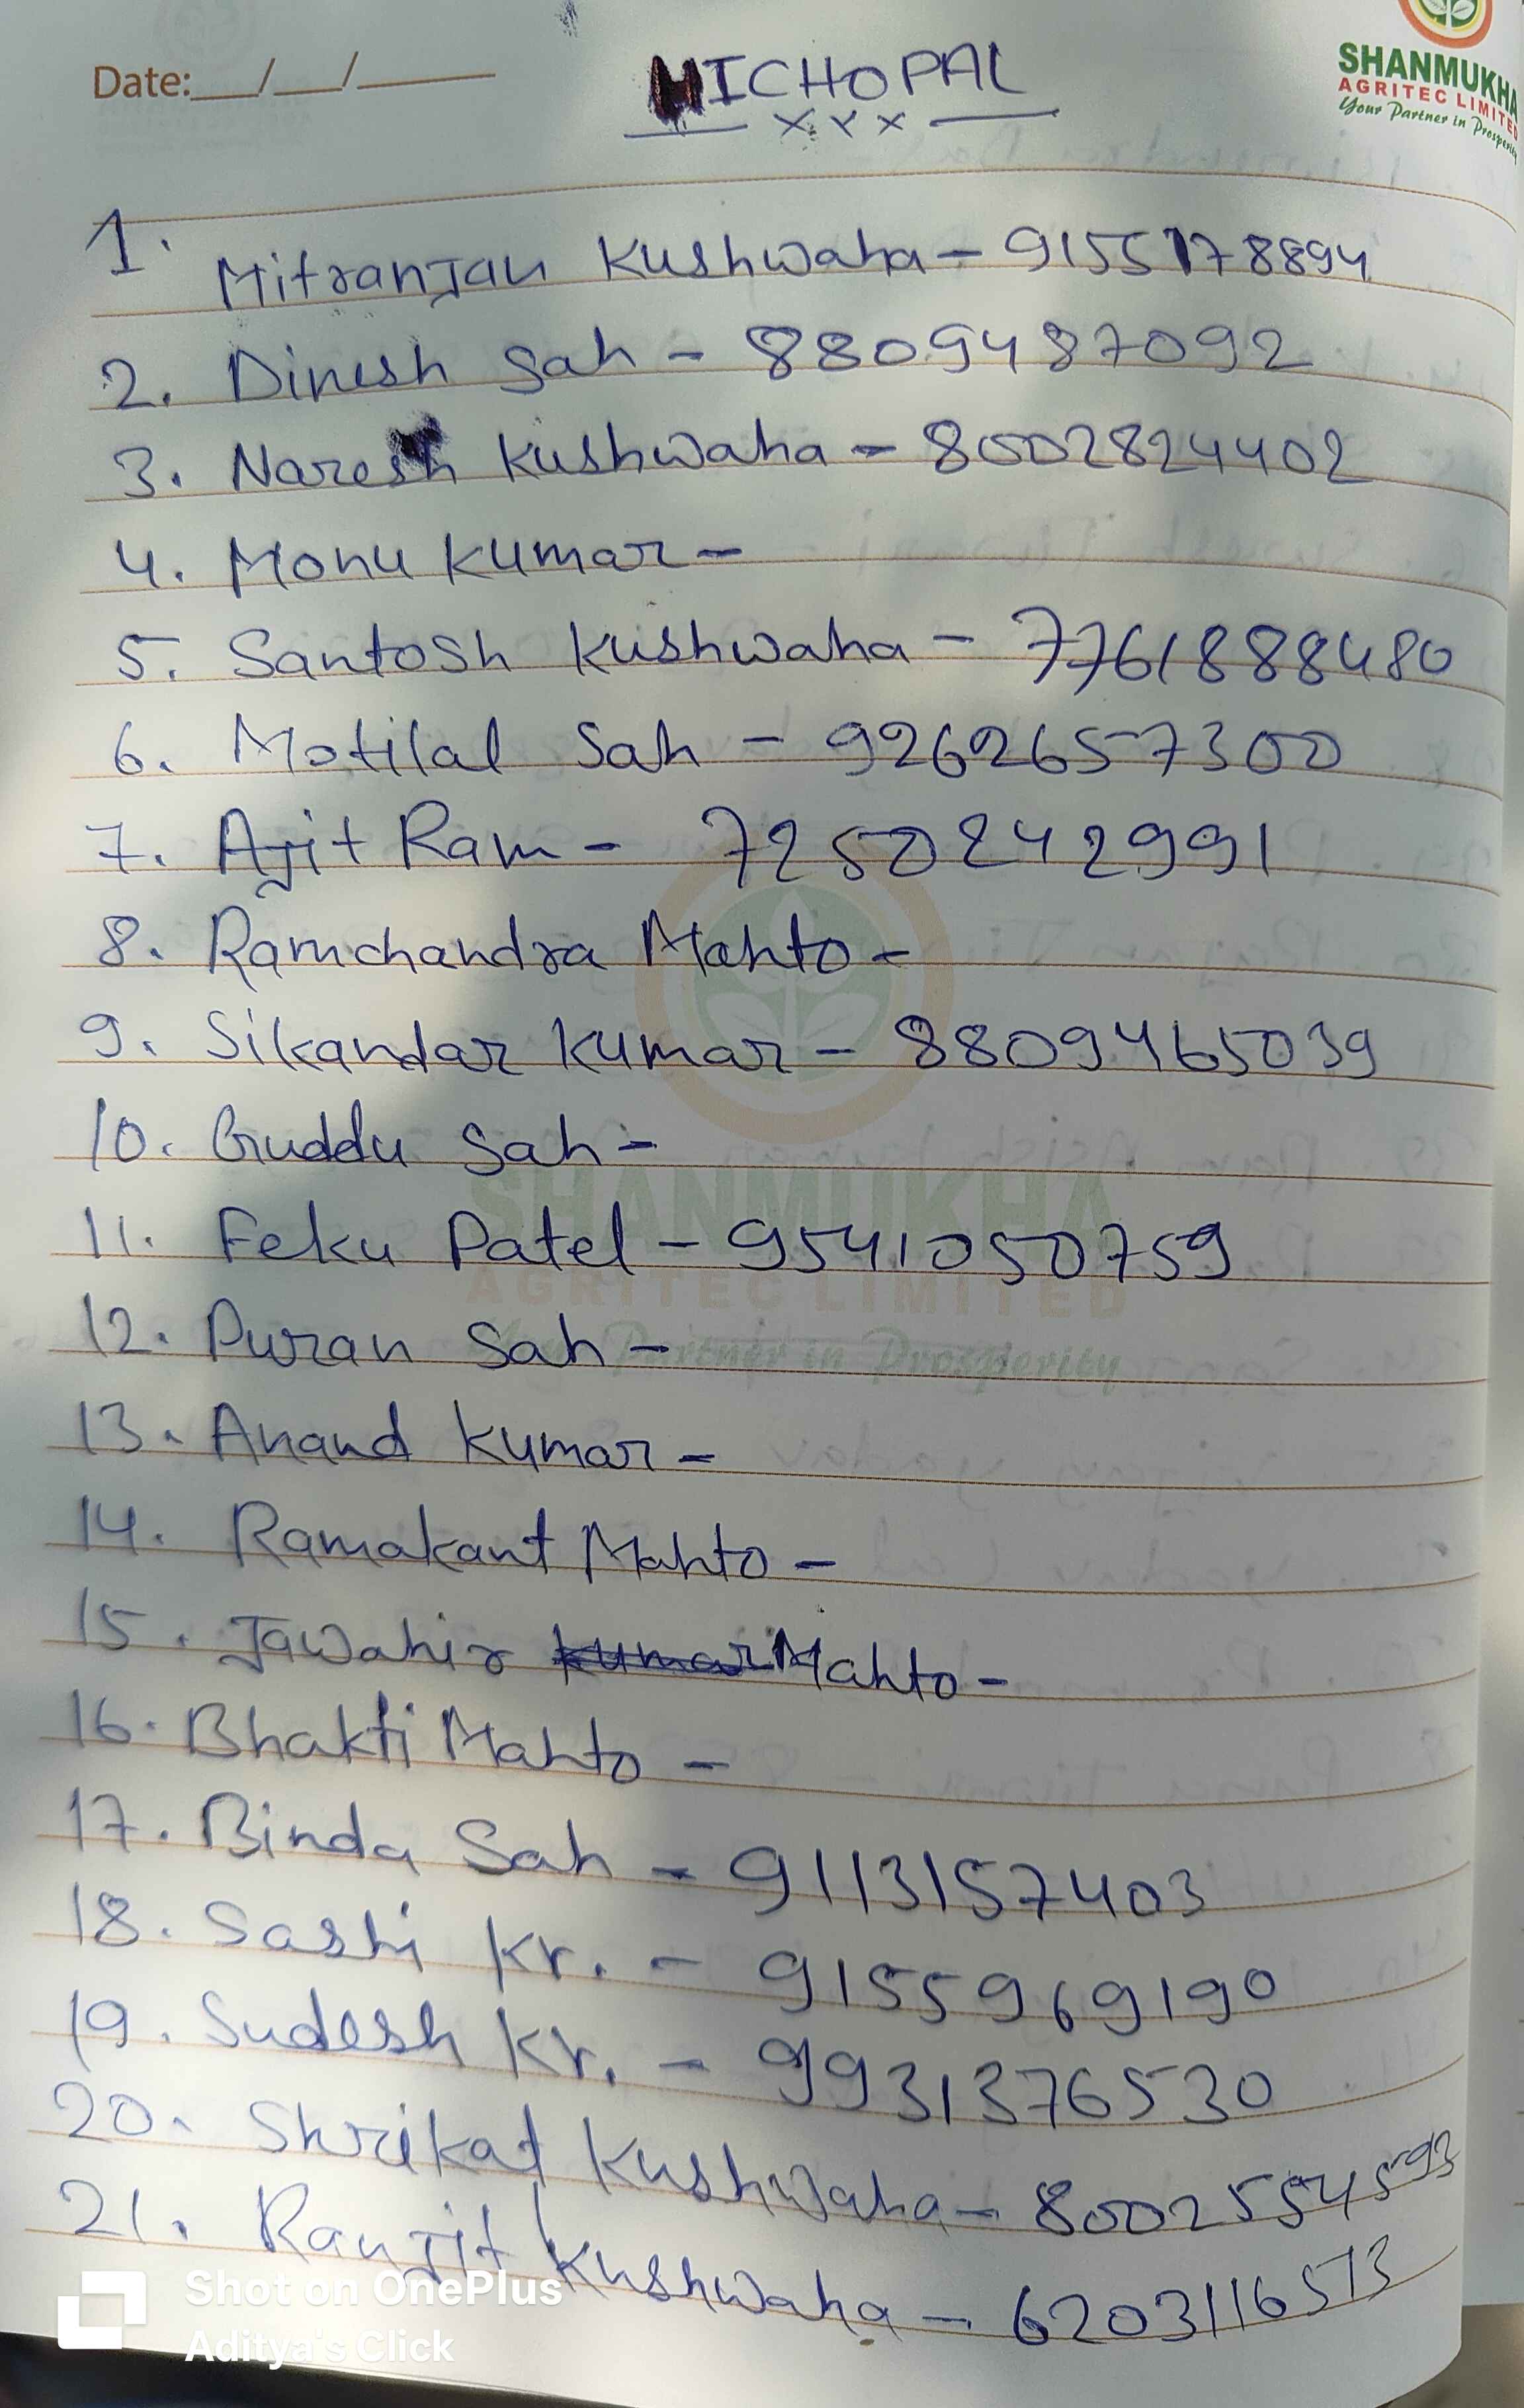 Date:__/__/____
MICHOPAL
x x x
SHANMUKHA
AGRITEC LIMITED
Your Partner in Prosperity
1. Mitranjan Kushwaha - 9155178894
2. Dinesh Sah - 8809487092
3. Naresh Kushwaha - 8002824402
4. Monu Kumar -
5. Santosh Kushwaha - 7761888480
6. Motilal Sah - 9262657300
7. Ajit Ram - 7250242991
8. Ramchandra Mahto -
9. Sikandar Kumar - 8809465039
10. Guddu Sah -
SHANMUKHA
11. Feku Patel - 9541050759
AGRITEC LIMITED
12. Puran Sah -
Your Partner in Prosperity
13. Anand Kumar -
14. Ramakant Mahto -
15. Jawahir Kumar Mahto -
16. Bhakti Mahto -
17. Binda Sah - 9113157403
18. Sashi Kr. - 9155969190
19. Sudesh Kr. - 9931376530
20. Shrikat Kushwaha -
21. Ranjit Kushwaha - 6203116513
Shot on OnePlus
Aditya's Click